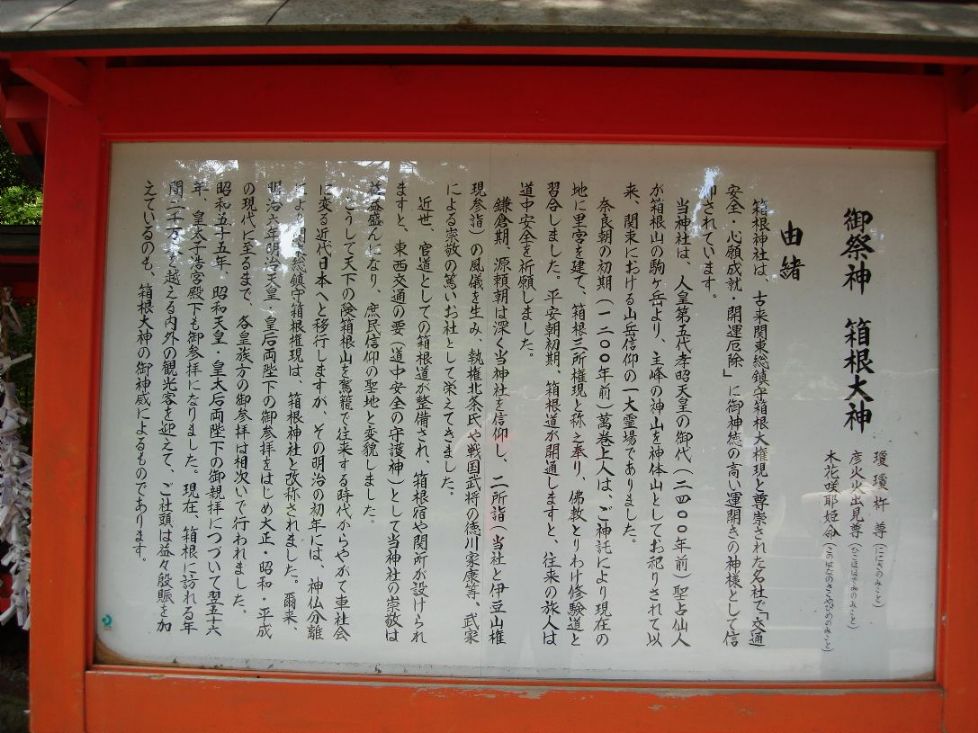 御祭神 箱根大神
瓊瓊杵尊(ににぎのみこと)
彦火火出見尊(ひこほほでみのみこと)
木花咲耶姫命(このはなのさくやひめのみこと)
由緒
箱根神社は、古来関東総鎮守箱根大権現と尊崇された名社で「交通
安全・心願成就・開運厄除」に御神徳の高い運開きの神様として信
仰されています。
当神社は、人皇第五代孝昭天皇の御代(二四〇〇年前)聖占仙人
が箱根山の駒ケ岳より、主峰の神山を神体山としてお祀りされて以
来、関東における山岳信仰の一大霊場でありました。
奈良朝の初期(一二〇〇年前)萬巻上人は、ご神託により現在の
地に里宮を建て、箱根三所権現と称え奉り、佛教とりわけ修験道と
習合しました。平安朝初期、箱根道が開通しますと、往来の旅人は
道中安全を祈願しました。
鎌倉期、源頼朝は深く当神社を信仰し、二所詣(当社と伊豆山権
現参詣)の風儀を生み、執権北条氏や戦国武将の徳川家康等、武家
による崇敬の篤いお社として栄えてきました。
近世、官道としての箱根道が整備され、箱根宿や関所が設けられ
ますと、東西交通の要(道中安全の守護神)として当神社の崇敬は
益々盛んになり、庶民信仰の聖地と変貌しました。
こうして天下の険箱根山を駕籠で往来する時代からやがて車社会
に変る近代日本へと移行しますが、その明治の初年には、神仏分離
により関東総鎮守箱根権現は、箱根神社と改称されました。爾来、
明治六年明治天皇・皇后両陛下の御参拝をはじめ大正・昭和・平成
の現代に至るまで、各皇族方の御参拝は相次いで行われました。
昭和五十五年、昭和天皇・皇太后両陛下の御親拝につづいて翌五十六
年、皇太子浩宮殿下も御参拝になりました。現在、箱根に訪れる年
間二千万を越える内外の観光客を迎えて、ご社頭は益々殷賑を加
えているのも、箱根大神の御神威によるものであります。